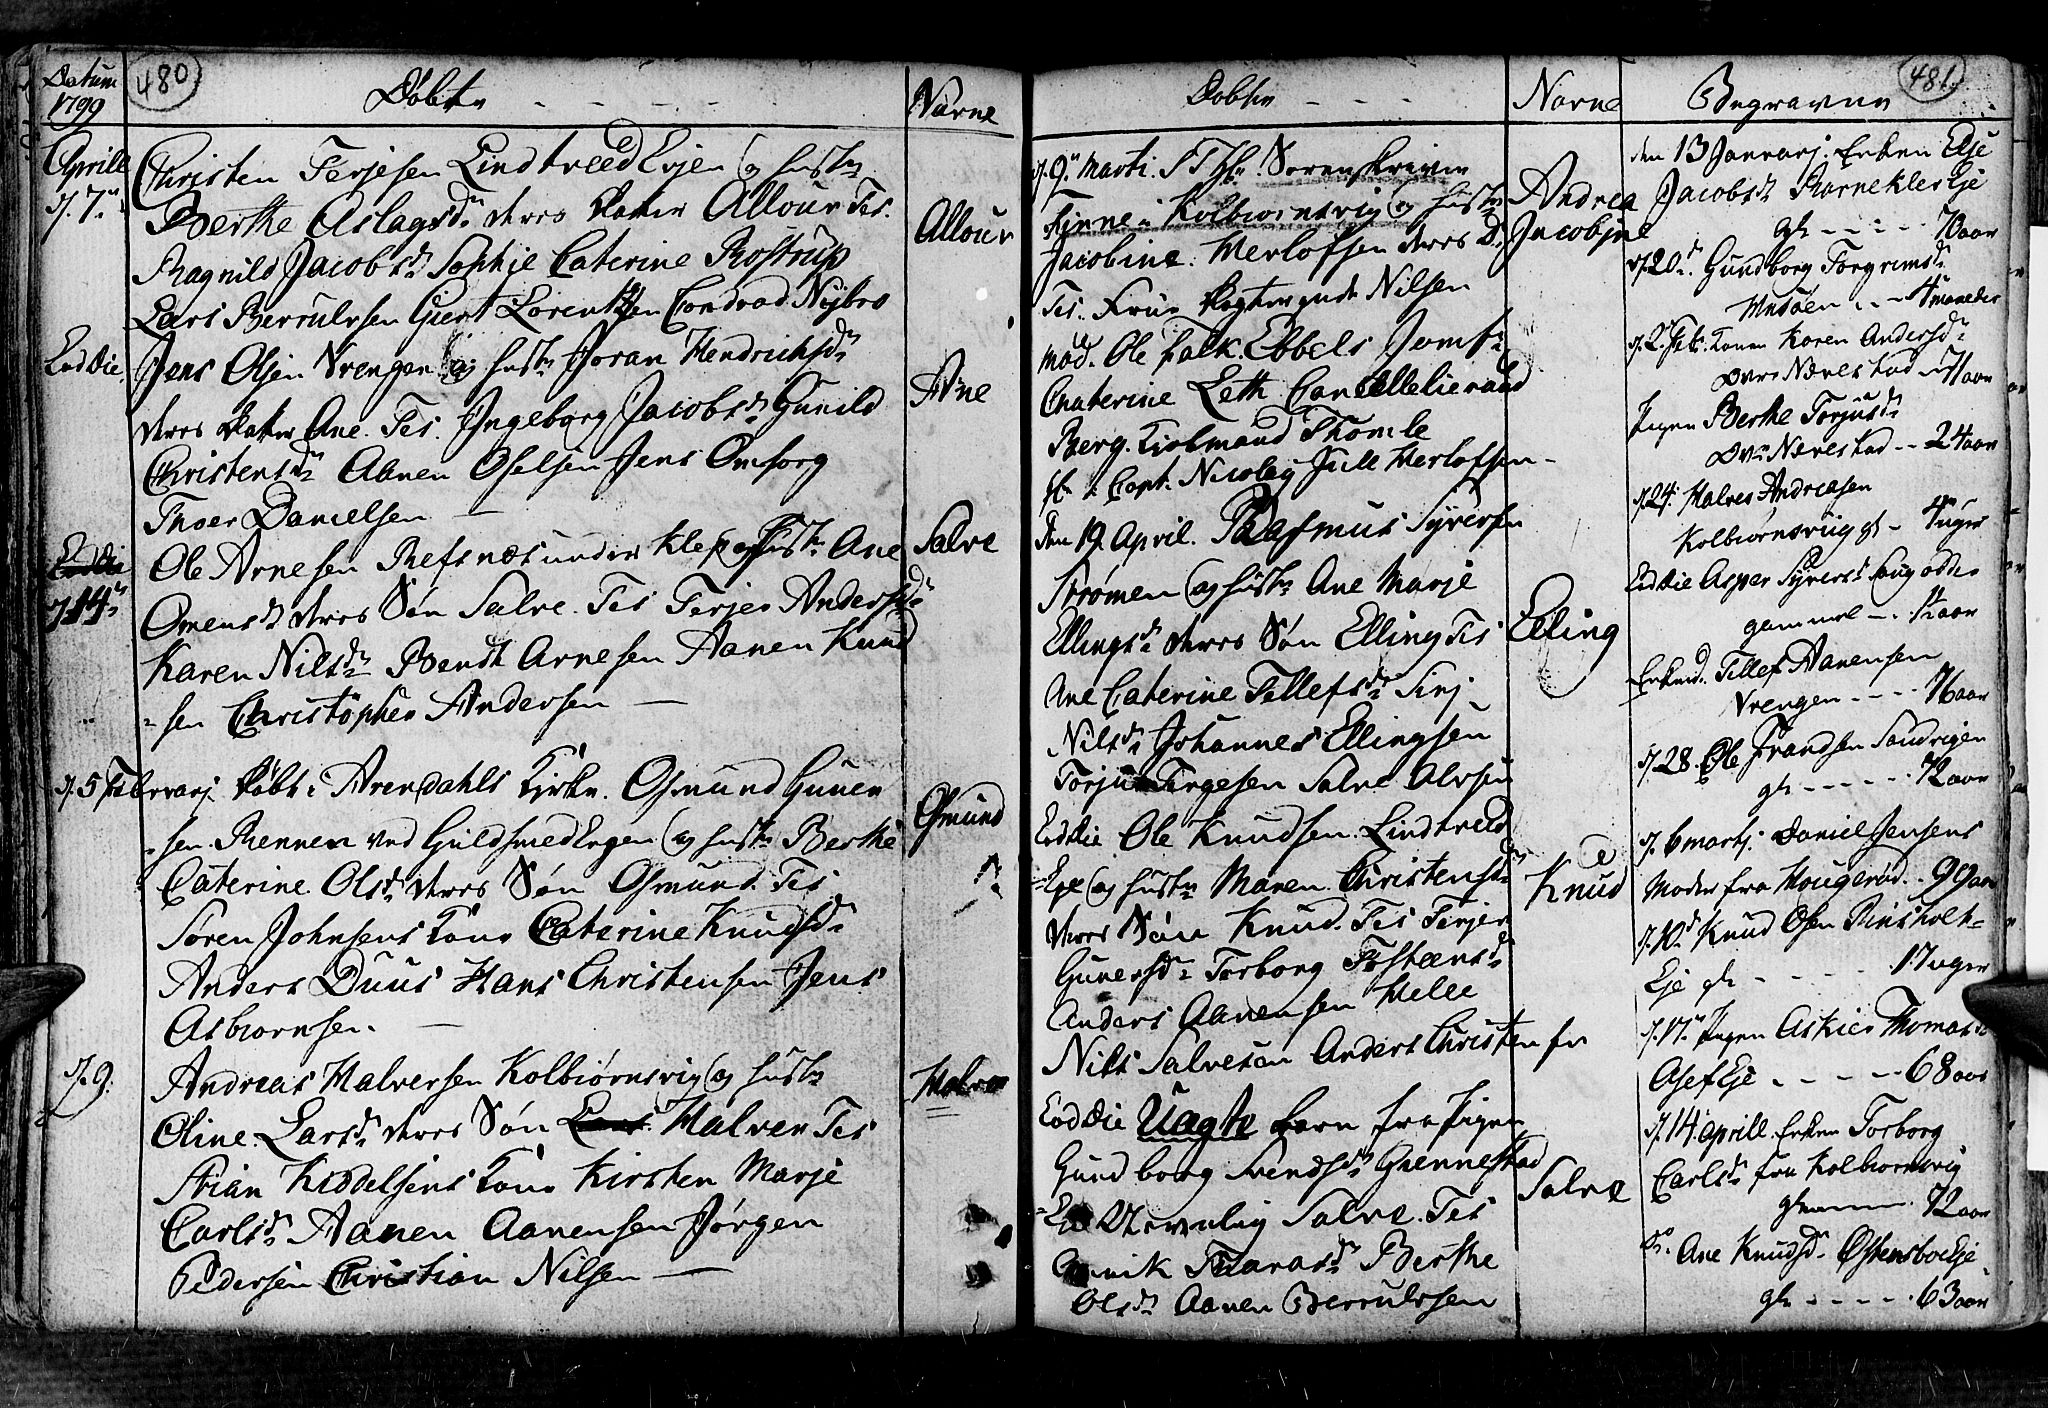 Datum
1799
480
Døbte
Navne
Aprill
d. 7de
Christen Terjesen Lindtveed Ejen og hustr
Berthe Aslagsd. deres datter Allour Tes.
Ragnild Jacobsd. Sophie Caterine Rostrup
Lars Berrulvsen Giert Lorentzen Conrad Nybro
Allour
Eod Die.
Jens Olsen Vrengen og hustr Joran Hendrichsd.
deres datter Ane. Tes. Ingeborg Jacobsd. Gunild
Christensd. Aanen Oselsen Jens Omforg
Thoer Danielsen
Ane
Eod Die
d. 14de
Ole Arnesen Refsnæs under Klep og hustr Ane
Omensd. deres Søn Salve. Tes Terjer Andersd.
Karen Nilsd. Bendt Arnesen Aanen Knud
-sen Christopher Andersen
Salve
d. 5 Februarj døbt i Arendahls Kirke. Osmund Guner
-sen Rennen ved Guldsmedengen og hustr Berthe
Caterine Olsd. deres Søn Osmund. Tes
Søren Johnsens Kone Caterine Knudsd.
Anders Duus Hans Christensen Jens
Asbiørnsen.
Osmund
d. 9.
Andreas Halversen Kolbiørnsvig og hustr
Oline Larsd. deres Søn Lars Halver Tes
Stian Kiddelsens Kone Kirsten Marje
Carlsd. Aanen Aanensen Jørgen
Pedersen Christian Nilsen
Halver
Døbte
Navne
d. 9de Marti. S T Hr. Sorenskriver
Finne i Kolbiørnsvig og hustr
Jacobine Herlofsen deres D.
Tes. Frue Nilsen
Mad. Ole Falk. Ebbels Jomfr
Chaterine Leth Cancellieraad
Berg. Kiøbmand Thomle
Hr. Capt. Nicolej Jull Herlofsen
Andrea
Jacobine
den 19 April. Rasmus Syversen
Strømen og hustr Ane Marje
Ellingsd. deres Søn Elling Tes
Ane Caterine Tellefsd. Sirj
Nilsd. Johannes Ellingsen
Torjus Tergesen Salve Alvsen
Elling
Eod Die Ole Knudsen Lindtveed
-Eje og hustr Maren Christensd.
deres Søn Knud. Tes Terjer
Gunersd. Torborg Tostensd.
Anders Aanensen Helle
Nils Salvesen Anders Christensen
Knud
Eod Die Uægte barn fra Pigen
Gundborg Svendsd. Grennestad
-Eje Salve. Tes
Tharasd. Berthe
Olsd. Aanen Berrulvsen
Salve
481.
Begravne
den 13 Januarj. Enken Else
Jacobsd. Rarnekler Eje
gl. - - - - 70 aar
d. 20d. Gundborg Torgrimsd.
- - 4 maaneder
d. 2. Feb. Konen Karen Andersd.
Øvre Nærestad - 71 aar
Pigen Berthe Torjusd.
Øvr Nærestad - - 24 aar
d. 24. Halves Andreasen
Kolbiørnsviig gl - 4 uger
Eod Die Asper Syversd. Laugodde
gammel - - 1/2 aar
Enkem. Tellef Aanensen
Vrengen - - - 76 aar
d. 28. Ole Frandsen Sandvigen
gl - - - - - 72 aar
d. 6 marts. Daniel Jensens
Moder fra Hougerød. 99 aar
d. 10d Knud Osen Rinsholt-
Eje gl - - - - - 17 uger
d. 17. Pigen Askier Thomasd.
Asef Eje - - - - - 68 aar
d. 14 aprill. Enken Torborg
Carlsd. fra Kolbiørnsvig
gl 72 aar
do. Ane Knudsd. Østensboe Eje
gl - - - - - 63 aar